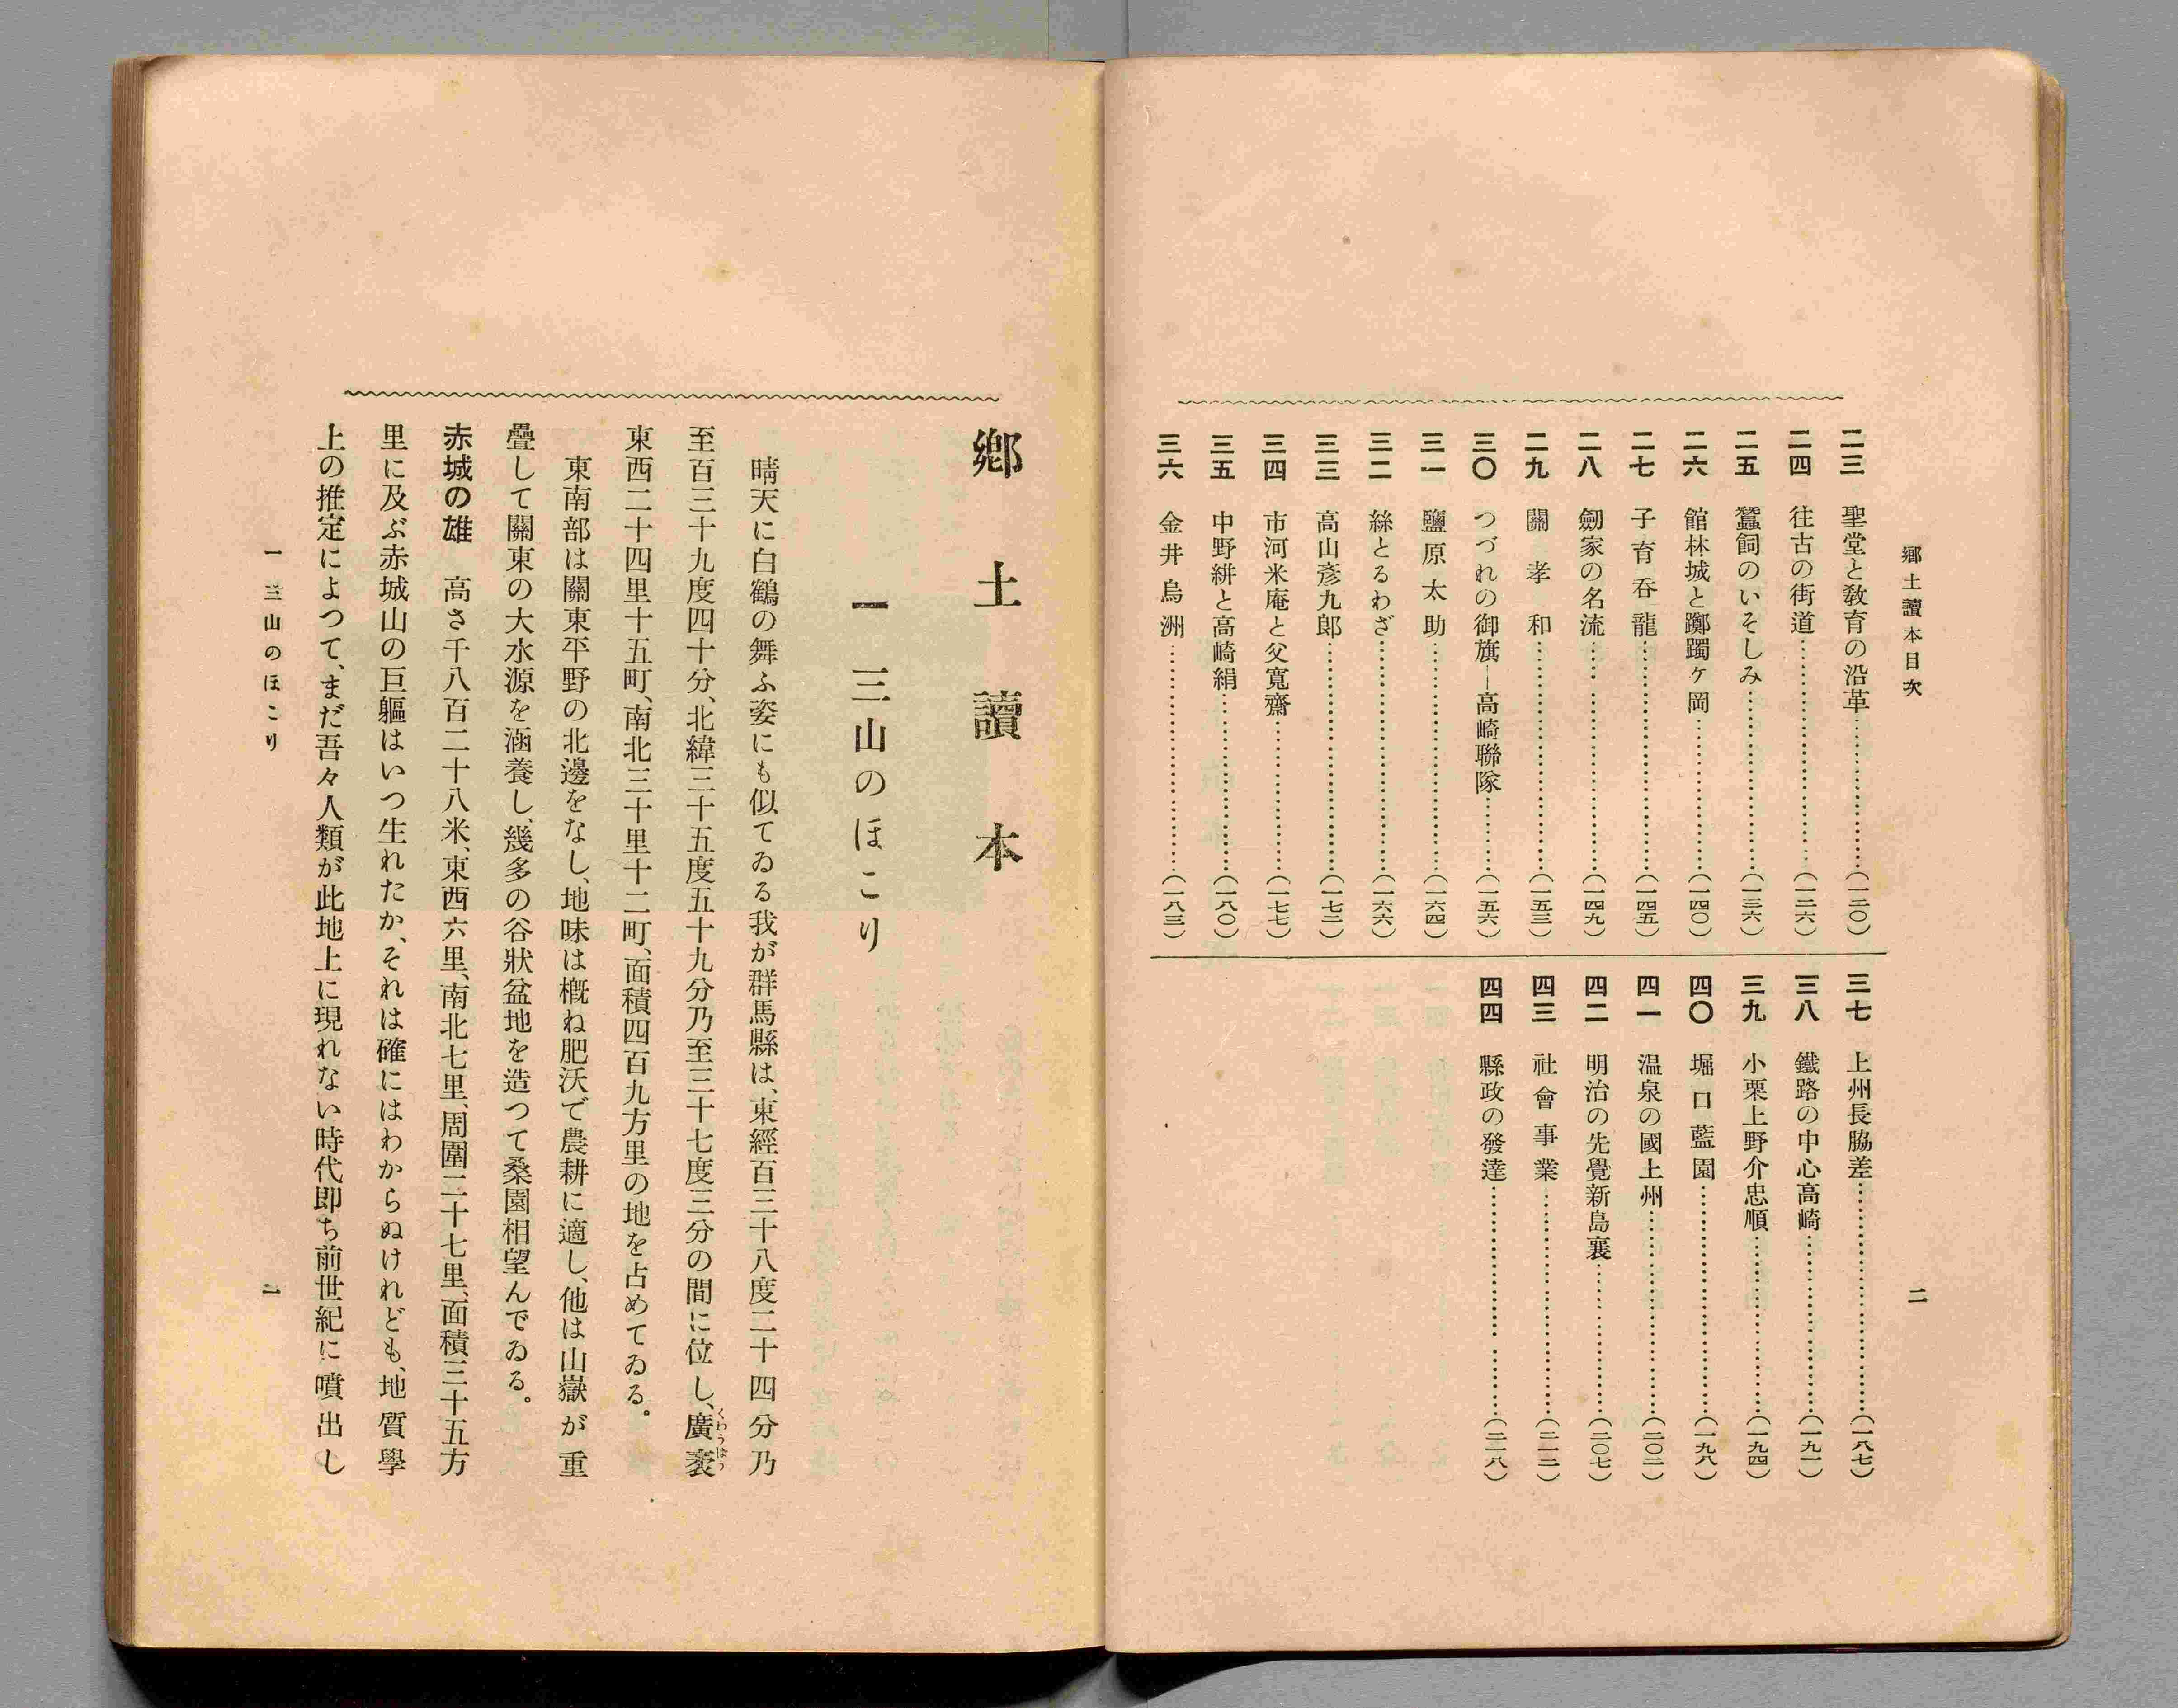 郷土讀本目次
二
二三 聖堂と教育の沿革……………(一二〇)
二四 往古の街道……………(一二六)
二五 蠶飼のいそしみ……………(一三六)
二六 館林城と躑躅ヶ岡……………(一四〇)
二七 子育呑龍……………(一四五)
二八 劒家の名流……………(一四九)
二九 關孝和……………(一五三)
三〇 つづれの御旗―高崎聯隊……………(一五六)
三一 鹽原太助……………(一六四)
三二 絲とるわざ……………(一六六)
三三 高山彥九郎……………(一七二)
三四 市河米庵と父寬齋……………(一七七)
三五 中野絣と高崎絹……………(一八〇)
三六 金井烏洲……………(一八三)
三七 上州長脇差……………(一八七)
三八 鐵路の中心高崎……………(一九一)
三九 小栗上野介忠順……………(一九四)
四〇 堀口藍園……………(一九八)
四一 温泉の國上州……………(二〇二)
四二 明治の先覺新島襄……………(二〇七)
四三 社會事業……………(二一二)
四四 縣政の發達……………(二一八)
鄕土讀本
一 三山のほこり
晴天に白鶴の舞ふ姿にも似てゐる我が群馬縣は、東經百三十八度二十四分乃
至百三十九度四十分、北緯三十五度五十九分乃至三十七度三分の間に位し、廣袤
くわうばう
東西二十四里十五町、南北三十里十二町、面積四百九方里の地を占めてゐる。
東南部は關東平野の北邊をなし、地味は槪ね肥沃で農耕に適し、他は山嶽が重
疊して關東の大水源を涵養し、幾多の谷狀盆地を造つて桑園相望んでゐる。
赤城の雄 高さ千八百二十八米、東西六里、南北七里、周圍二十七里、面積三十五方
里に及ぶ赤城山の巨軀はいつ生れたか、それは確にはわからぬけれども、地質學
上の推定によつて、まだ吾々人類が此地上に現れない時代即ち前世紀に噴出し
一 三山のほこり
一